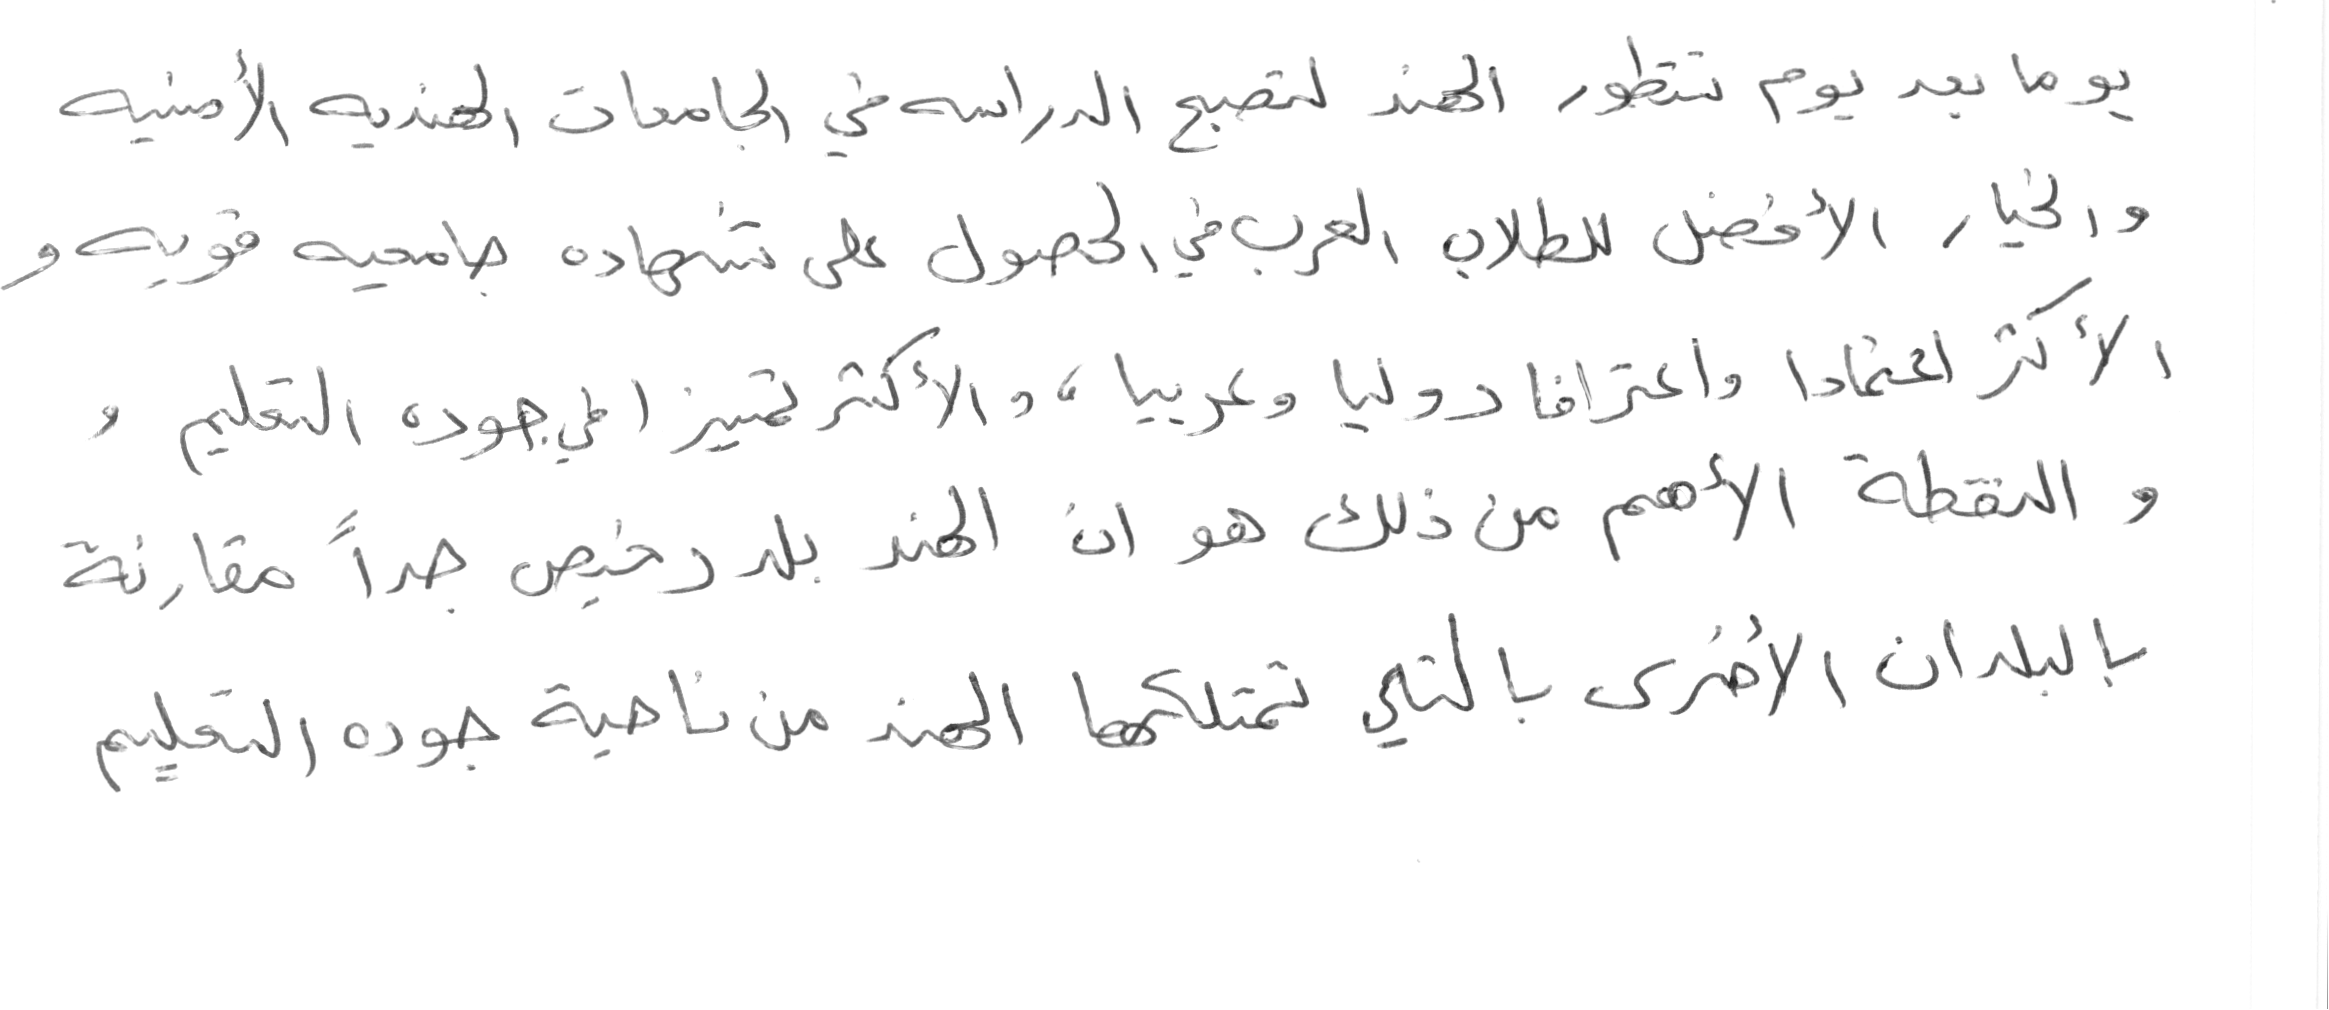 يوما بعد يوم تتطور الهند لتصبح الدراسه في الجامعات الهنديه الأمنيه
والخيار الأفضل للطلاب العرب في الحصول على شهاده جامعيه قويه و
الأكثر اعتمادا واعترافا دوليا وعربيا ، والأكثر تميزا في جوده التعليم و
و النقطة الأهم من ذلك هو ان الهند بلد رخيص جداً مقارنة
بالبلدان الأخرى بالتي تمتلكها الهند من ناحية جوده التعليم